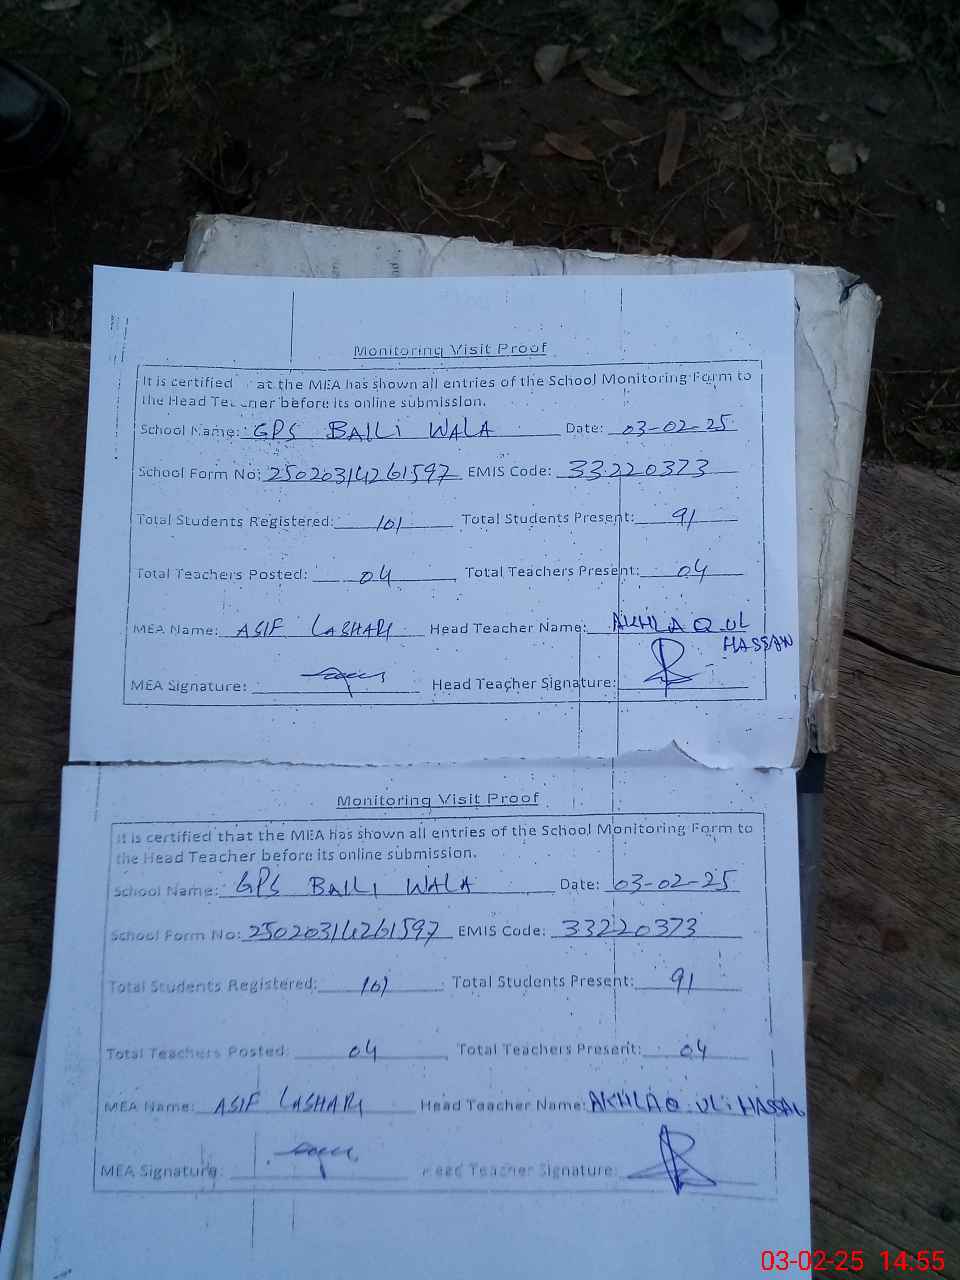 Monitoring Visit Proof
It is certified at the MEA has shown all entries of the School Monitoring Form to
the Head Teacher before its online submission.
School Name: GPS BAILI WALA Date: 03-02-25
School Form No: 25020314261597 EMIS Code: 33220373
Total Students Registered: 101 Total Students Present: 91
Total Teachers Posted: 04 Total Teachers Present: 04
MEA Name: ASIF LASHARI Head Teacher Name: AKHLAQ UL
HASSAN
MEA Signature: Head Teacher Signature:
Monitoring Visit Proof
It is certified that the MEA has shown all entries of the School Monitoring Form to
the Head Teacher before its online submission.
School Name: GPS BAILI WALA Date: 03-02-25
School Form No: 25020314261597 EMIS Code: 33220373
Total Students Registered: 101 Total Students Present: 91
Total Teachers Posted: 04 Total Teachers Present: 04
MEA Name: ASIF LASHARI Head Teacher Name: AKHLAQ UL HASSAN
MEA Signature: Head Teacher Signature:
03-02-25 14:55